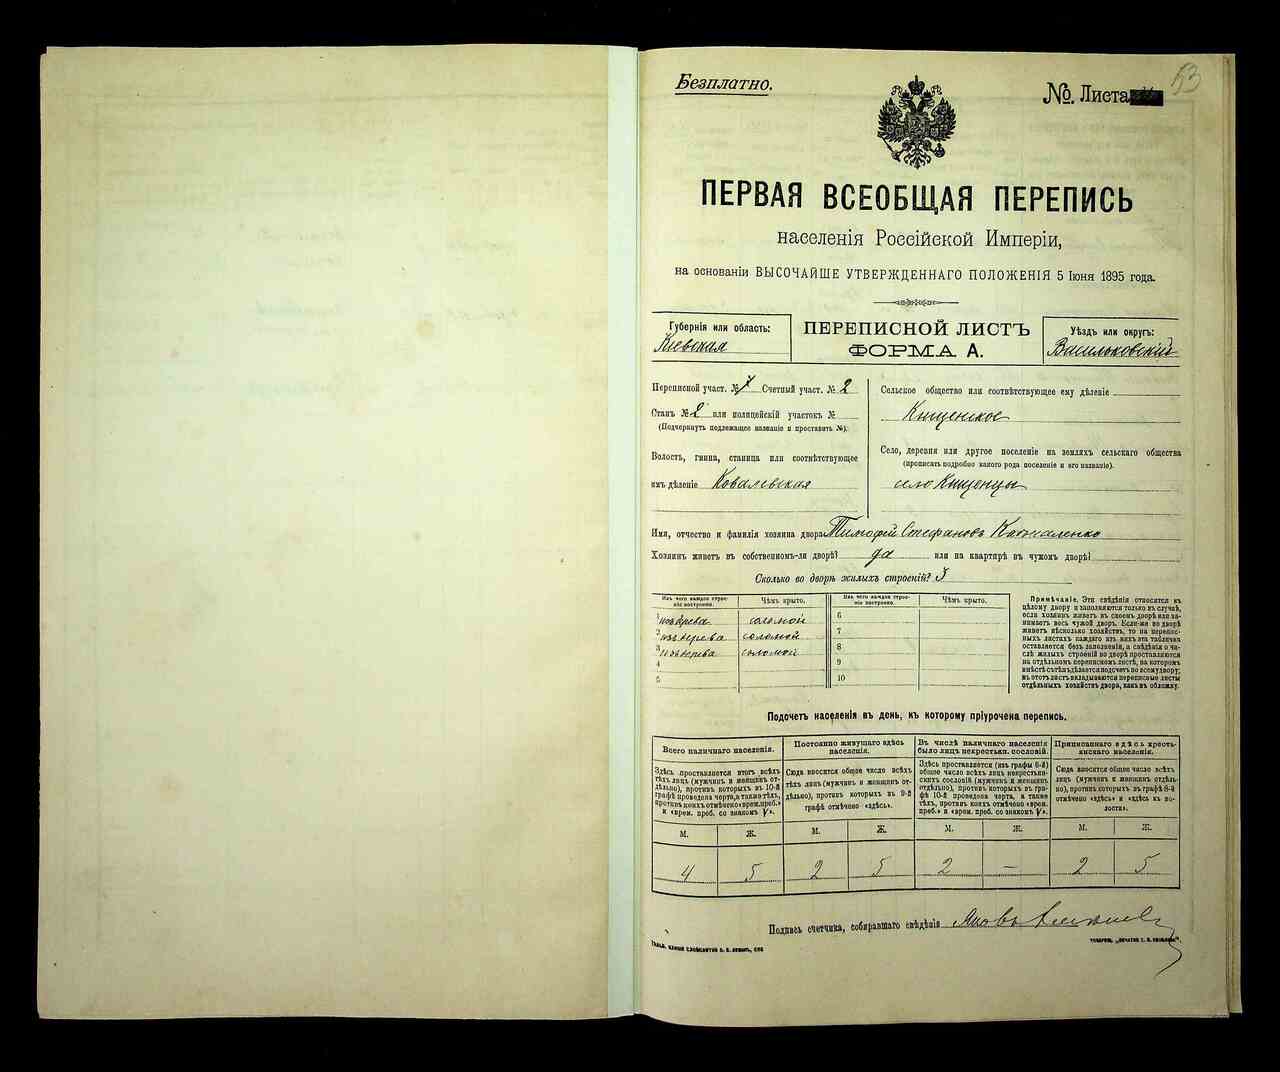 53
Безплатно.
№. Листа
ПЕРВАЯ ВСЕОБЩАЯ ПЕРЕПИСЬ
населенія Россійской Имперіи,
на основаніи ВЫСОЧАЙШЕ УТВЕРЖДЕННАГО ПОЛОЖЕНІЯ 5 Іюня 1895 года.
Губернія или область:
Кіевская
ПЕРЕПИСНОЙ ЛИСТЪ
ФОРМА А.
Уѣздъ или округъ:
Васильковскій
Переписной участ. № 7 Счетный участ. № 2
Станъ № 2 или полицейскій участокъ №
(Подчеркнуть подлежащее названіе и проставить №).
Волость, гмина, станица или соотвѣтствующее
имъ дѣленіе Ковалевская
Сельское общество или соотвѣтствующее ему дѣленіе
Кищенское
Село, деревня или другое поселеніе на земляхъ сельскаго общества
(прописать подробно какого рода поселеніе и его названіе).
село Кищенцы
Имя, отчество и фамилія хозяина двора Тимофей Стефановъ
Хозяинъ живетъ въ собственномъ-ли дворѣ? да или на квартирѣ въ чужомъ дворѣ?
Сколько во дворѣ жилыхъ строеній? 3
Изъ чего каждое строеніе построено. Чѣмъ крыто.
1 изъ дерева соломой
2 изъ дерева соломой
3 изъ дерева соломой
4
5
Изъ чего каждое строеніе построено. Чѣмъ крыто.
6
7
8
9
10
Примѣчаніе. Эти свѣдѣнія относятся къ
цѣлому двору и заполняются только въ случаѣ,
если хозяинъ живетъ въ своемъ дворѣ или занимаетъ
весь чужой дворъ. Если-же во дворѣ
живетъ нѣсколько хозяйствъ, то на переписныхъ
листахъ каждаго изъ нихъ эта табличка
оставляется безъ заполненія, а свѣдѣнія о числѣ
жилыхъ строеній во дворѣ проставляются
на отдѣльномъ переписномъ листѣ, на которомъ
вмѣстѣ съ тѣмъ дѣлается подсчетъ по всему двору;
въ этотъ листъ вкладываются переписные листы
отдѣльныхъ хозяйствъ двора, какъ въ обложку.
Подсчетъ населенія въ день, къ которому пріурочена перепись.
Всего наличнаго населенія.
Здѣсь проставляется итогъ всѣхъ
тѣхъ лицъ (мужчинъ и женщинъ отдѣльно),
противъ которыхъ въ 10-й
графѣ проведена черта, а также тѣхъ,
противъ коихъ отмѣчено «врем. преб.»
и «врем. преб. со знакомъ V».
М. Ж.
4 5
Постоянно живущаго здѣсь
населенія.
Сюда вносится общее число всѣхъ
тѣхъ лицъ (мужчинъ и женщинъ отдѣльно),
противъ которыхъ въ 9-й
графѣ отмѣчено «здѣсь».
М. Ж.
2 5
Въ числѣ наличнаго населенія
было лицъ некрестьян. сословій.
Здѣсь проставляется (изъ графы 6-й)
общее число всѣхъ лицъ некрестьянскихъ
сословій (мужчинъ и женщинъ
отдѣльно), противъ которыхъ въ графѣ
10-й проведена черта, а также
тѣхъ, противъ коихъ отмѣчено «врем.
преб.» и «врем. преб. со знакомъ V».
М. Ж.
2 —
Приписаннаго здѣсь крестьянскаго
населенія.
Сюда вносится общее число всѣхъ
лицъ (мужчинъ и женщинъ отдѣльно),
противъ коихъ въ графѣ 8-й
отмѣчено «здѣсь» и «здѣсь къ волости».
М. Ж.
2 5
Подпись счетчика, собиравшаго свѣдѣнія Яковъ